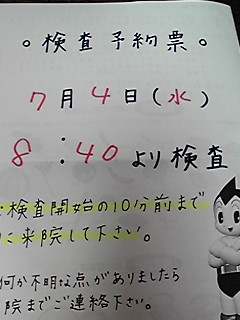 ○検査予約票○
7月4日(水)
8:40より検査
検査開始の10分前まで
に来院して下さい。
何か不明な点がありましたら
院までご連絡下さい。